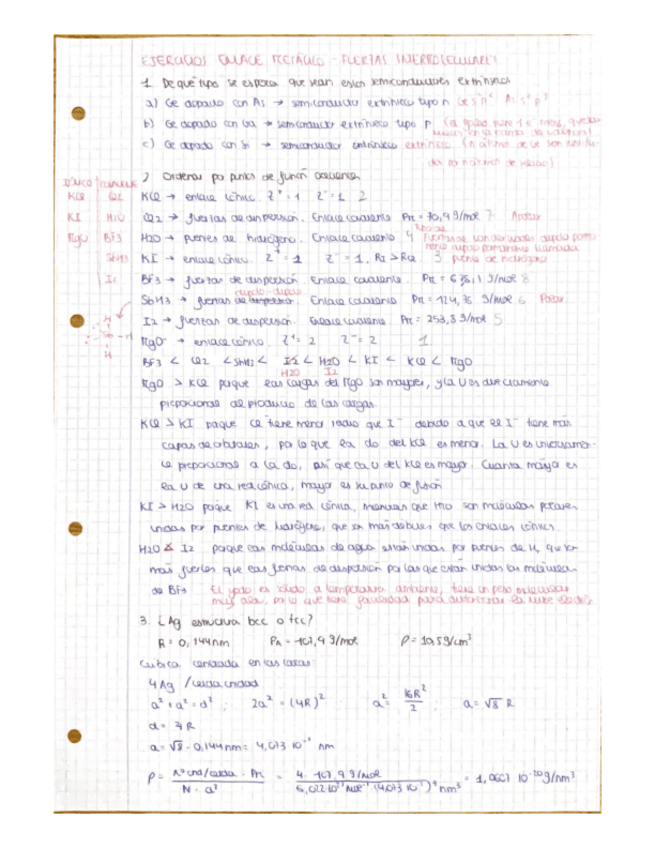 EJERCICIOS ENLACE METÁLICO - FUERZAS INTERMOLECULARES
1. De qué tipo se espera que sean estos semiconductores extrínsecos
a) Ge dopado con As → semiconductor extrínseco tipo n
b) Ge dopado con Ga → semiconductor extrínseco tipo p
c) Ge dopado con Si → semiconductor extrínseco
2) Ordena por puntos de fusión crecientes
IÓNICO
KCl Cl2 KCl → enlace iónico. Z+ = 1 Z- = 1 2
KI H2O Cl2 → fuerzas de dispersión. Enlace covalente Pm = 70,9 g/mol 7 Apolar
MgO BF3 H2O → puentes de hidrógeno. Enlace covalente 4
puente de hidrógeno
SbH3 KI → enlace iónico. Z+ = 1 Z- = 1. RI > RCl 3
I2 BF3 → fuerzas de dispersión. Enlace covalente. Pm = g/mol 8
dipolo-dipolo
SbH3 → fuerzas de dispersión. Enlace covalente Pm = 124,76 g/mol 6 Polar
I2 → fuerzas de dispersión. Enlace covalente. Pm = 253,8 g/mol 5
MgO → enlace iónico. Z+ = 2 Z- = 2 1
BF3 < Cl2 < SbH3 < I2 < H2O < KI < KCl < MgO
H2O I2
MgO > KCl porque las cargas del MgO son mayores, y la U es directamente
proporcional al producto de las cargas.
KCl > KI porque Cl tiene menor radio que I- debido a que el I- tiene más
capas de orbitales, por lo que la do del KCl es menor. La U es inversamen-
te proporcional a la do, así que la U del KCl es mayor. Cuanto mayor es
la U de una red iónica, mayor es su punto de fusión
KI > H2O porque KI es una red iónica, mientras que H2O son moléculas polares
unidas por puentes de hidrógeno, que son más débiles que los enlaces iónicos.
H2O I2 porque las moléculas de agua están unidas por puentes de H, que son
más fuertes que las fuerzas de dispersión por las que están unidas las moléculas
de BF3 El yodo es sólido a temperatura ambiente, tiene un peso molecular
muy alto, por lo que tiene facilidad para distorsionar la nube
3. ¿Ag estructura bcc o fcc?
R = 0,144 nm PA = 107,9 g/mol ρ = 10,5 g/cm3
Cúbica centrada en las caras
4 Ag / celda unidad
a2 + a2 = d2 ; 2a2 = (4R)2 a2 = 16R2/2 a = √8 R
d = 4R
a = √8 · 0,144 nm = nm
ρ = nº und/celda · Pm / N · a3 = 4 · 107,9 g/mol / nm3 = g/nm3